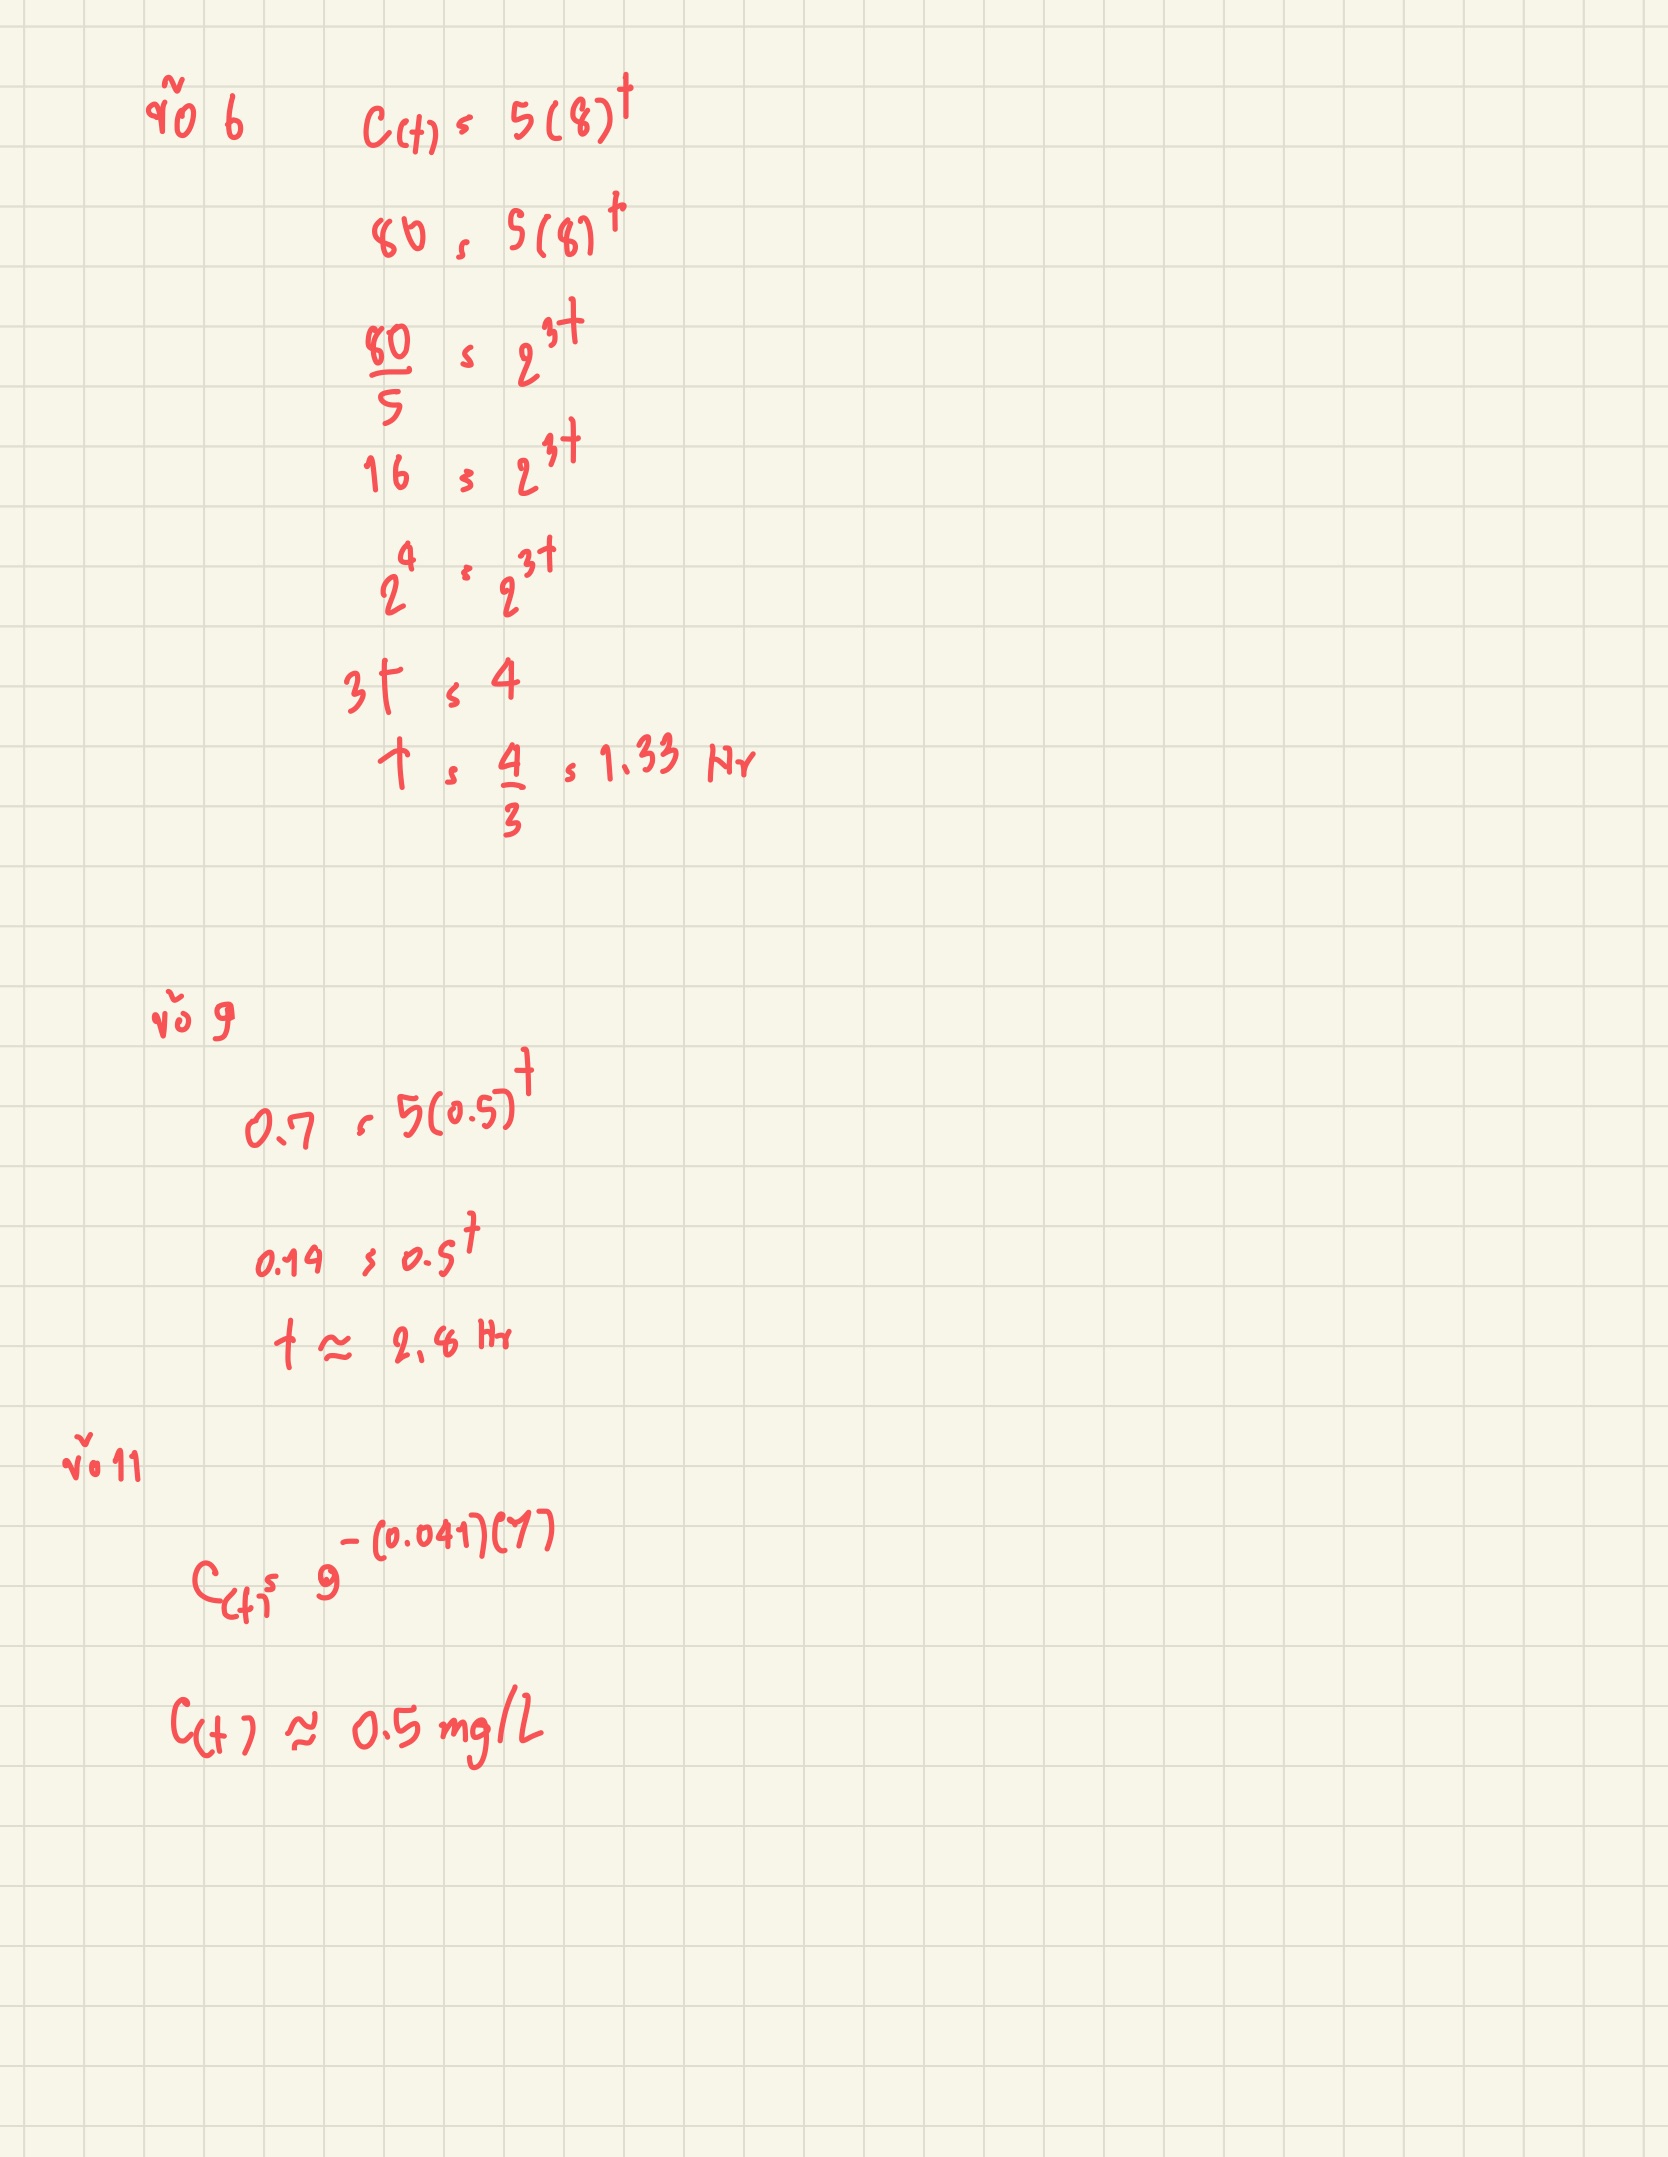 ข้อ 6 C(t) = 5(8)^t
80 = 5(8)^t
80/5 = 2^3t
16 = 2^3t
2^4 = 2^3t
3t = 4
t = 4/3 = 1.33 Hr
ข้อ 9
0.7 = 5(0.5)^t
0.14 = 0.5^t
t ≈ 2.8 Hr
ข้อ 11
C(t) = 9^-(0.041)(7)
C(t) ≈ 0.5 mg/L